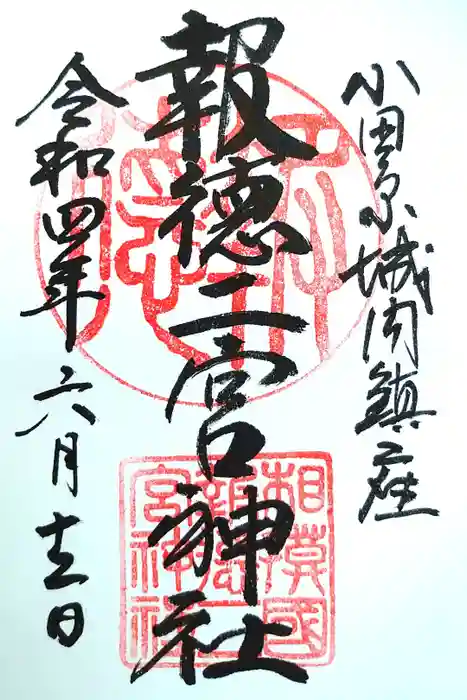 小田原城内鎮座
報徳二宮神社
令和四年六月十五日
相模國
報徳二
宮神社